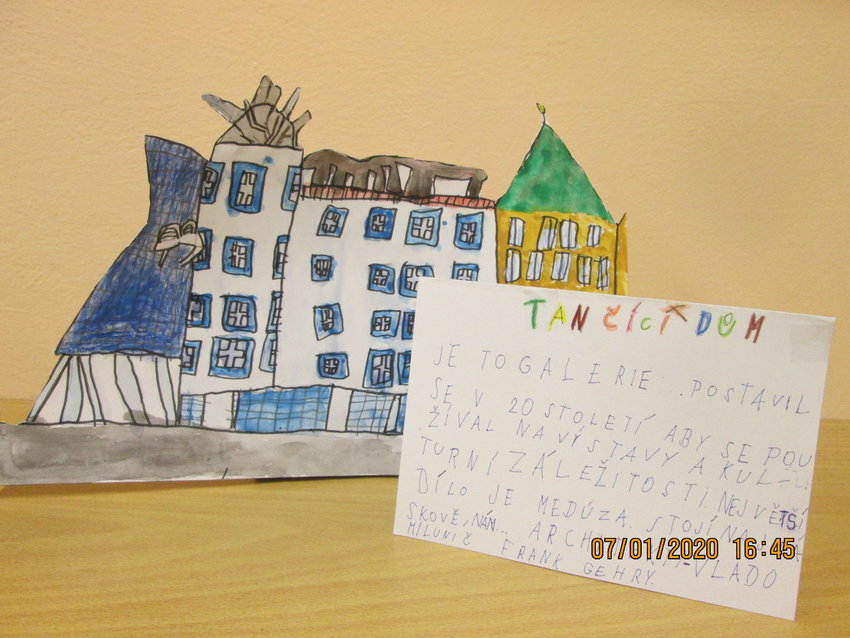 TANČÍCÍ DOM
JE TO GALERIE. POSTAVIL
SE V 20 STOLETÍ ABY SE POU
ŽÍVAL NA VÝSTAVY A KULTU
TURNÍ ZÁLEŽITOSTI. NEJVĚTŠÍ
DÍLO JE MEDÚZA. STOJÍ NA
SKOVĚ, NÁM. VLADO
MILUNIČ FRANK GEHRY.
07/01/2020 16:45